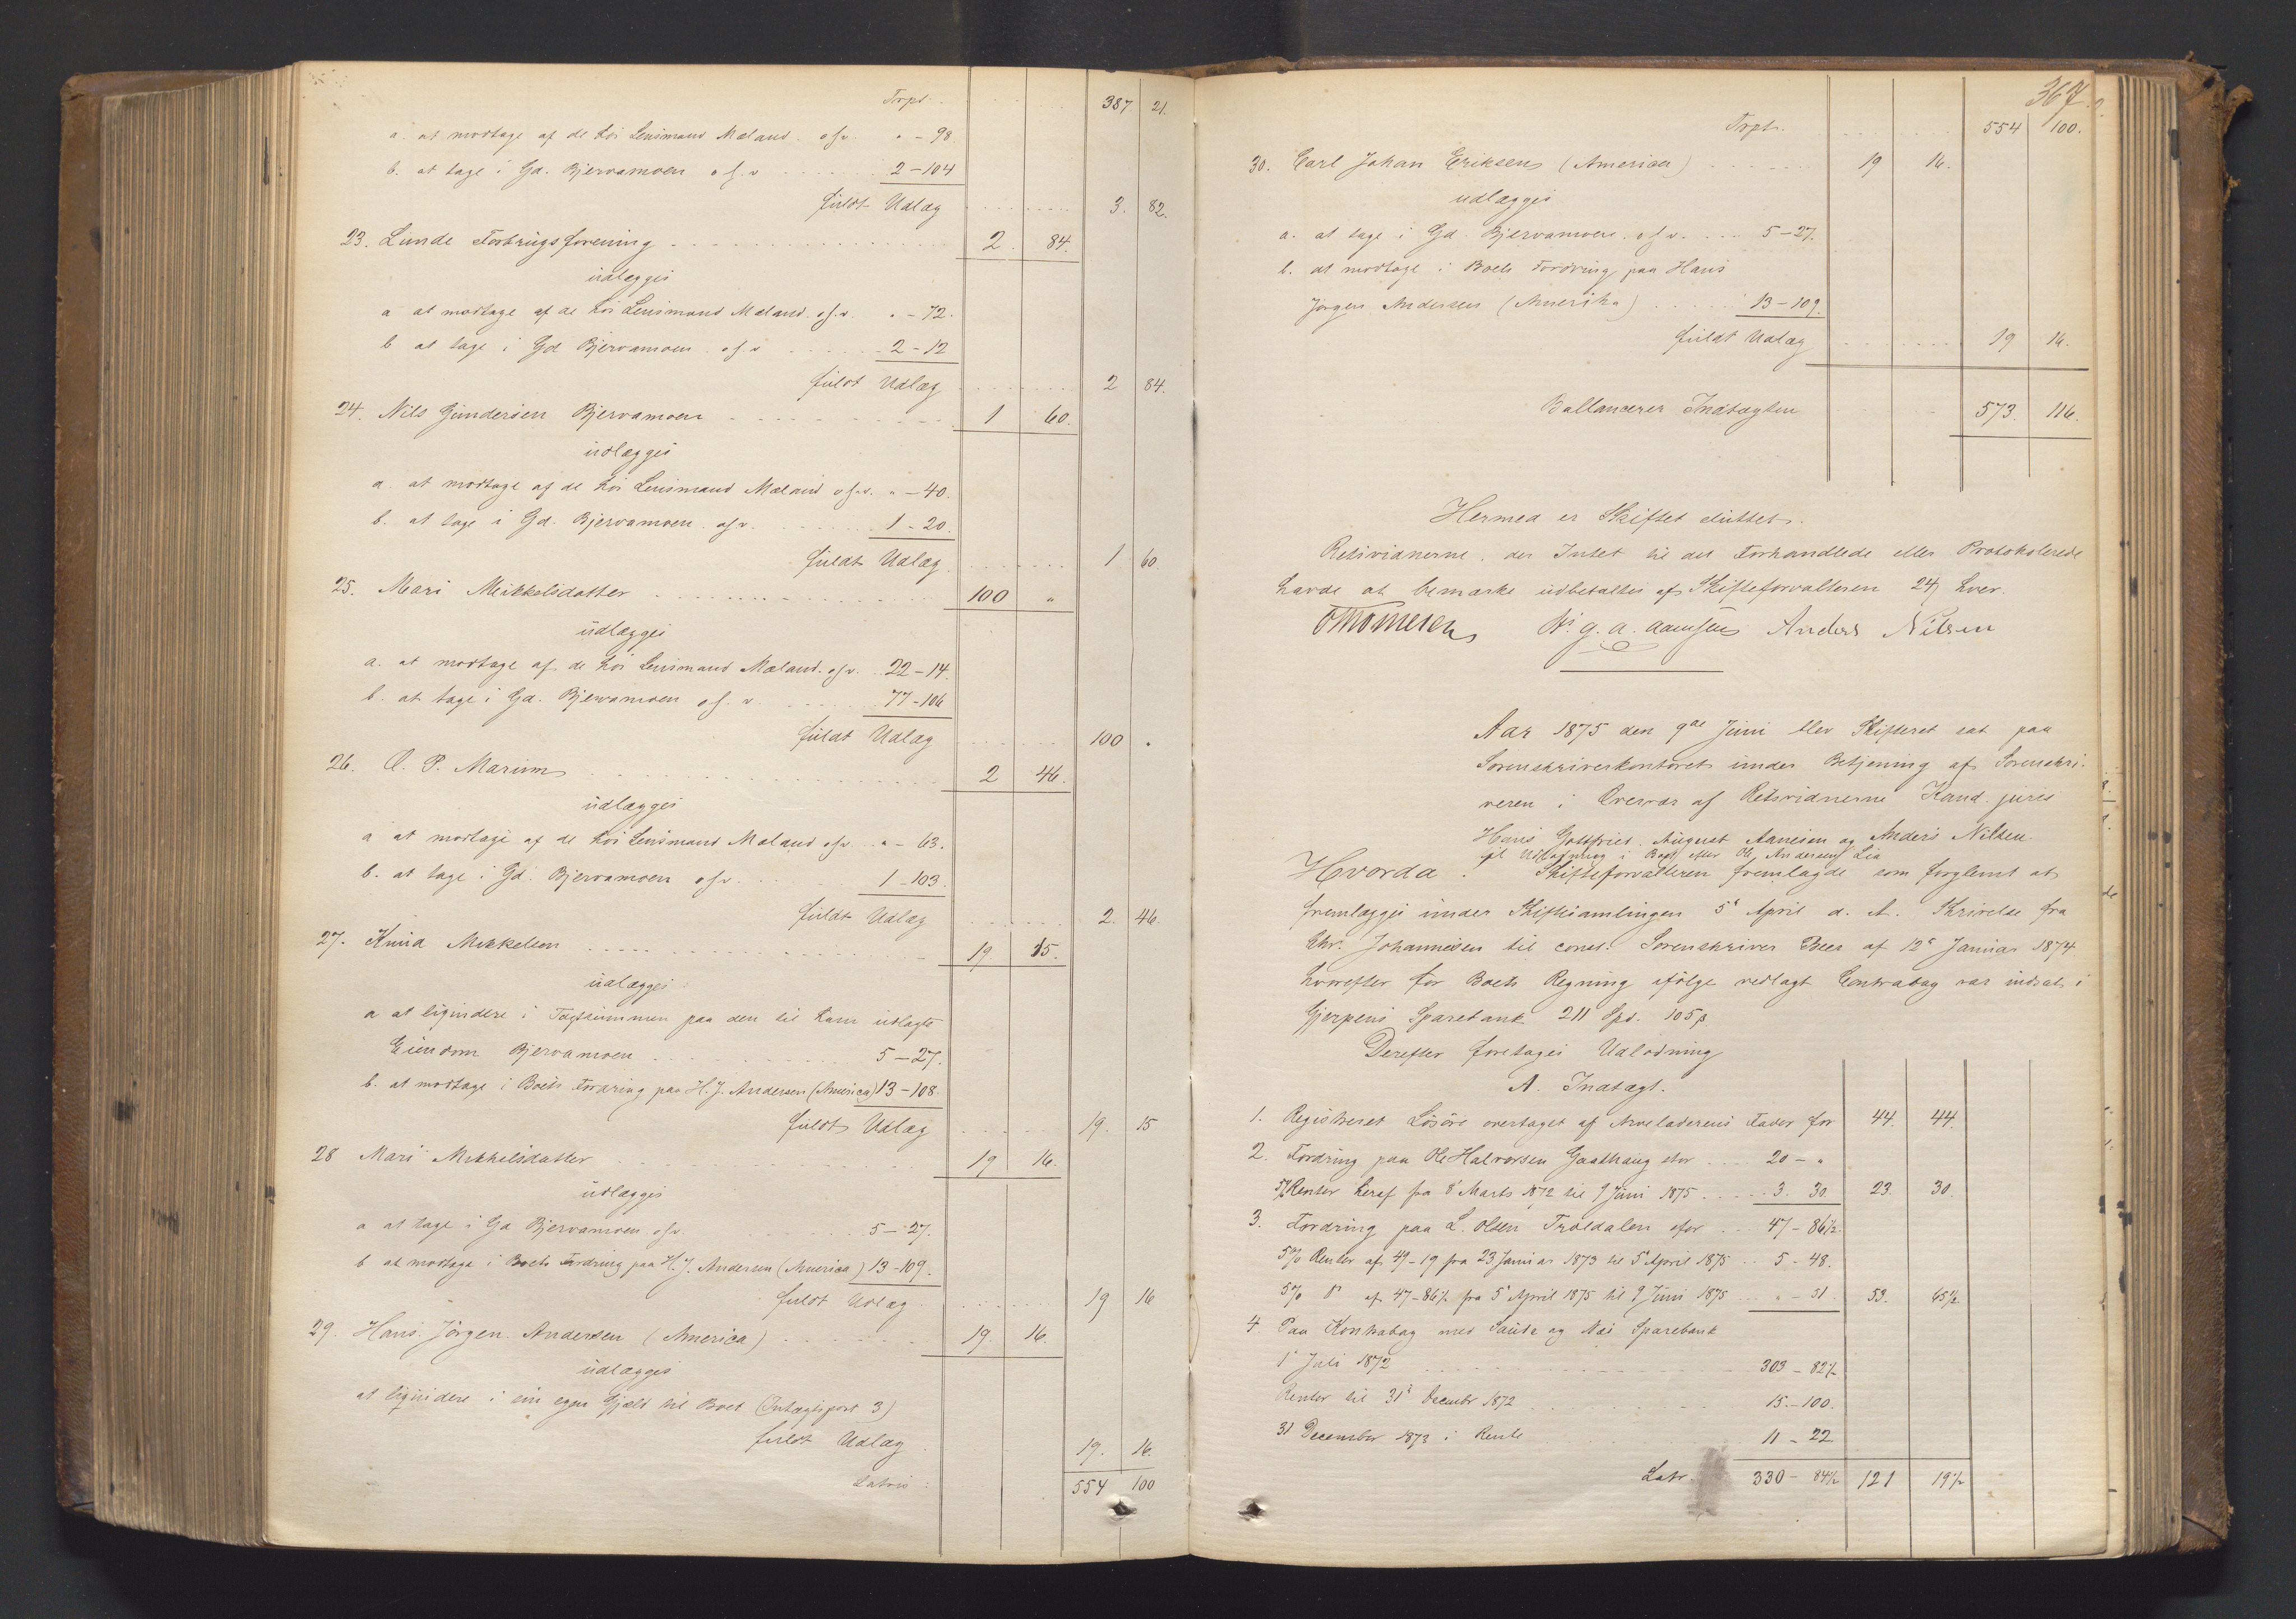 Trpt. 387. 21.
a. at modtage af de hos Lensmand Mæland. ofv. " - 98.
b. at tage i Gd. Bjervamoen ofv 2 - 104
fuldt Udlæg 3. 82.
23. Lunde Forbrugsforening 2. 84.
udlægges
a at modtage af de hos Lensmand Mæland. ofv. " - 72.
b at tage i Gd Bjervamoen. ofv 2 - 12
fuldt Udlæg 2 84.
24. Nils Gundersen Bjervamoen 1 60.
udlægges
a. at modtage af de hos Lensmand Mæland ofv. " - 40.
b. at tage i Gd. Bjervamoen. ofv. 1 - 20.
fuldt Udlæg. 1 60
25. Mari Mikkelsdatter 100 "
udlægges
a. at modtage af de hos Lensmand Mæland. ofv. 22 - 14.
b. at tage i Gd. Bjervamoen ofv. 77 - 106
fuldt Udlæg 100 "
26. O. P. Marum 2 46.
udlægges
a at modtage af de hos Lensmand Mæland ofv. " - 63.
b. at tage i Gd. Bjervamoen ofv. 1 - 103.
fuldt Udlæg 2. 46.
27. Knud Mikkelsen 19 15.
udlægges
a at liqvidere i Taxtsummen paa den til ham udlagte
Eiendom Bjervamoen 5 - 27.
b. at modtage i Boets Fordring paa H. J. Andersen (America) 13 - 108.
fuldt Udlæg 19. 15
28 Mari Mikkelsdatter 19 16.
udlægges
a at tage i Gd Bjervamoen ofv. 5 - 27.
b at modtage i Boets Fordring paa H. J. Andersen (America) 13 - 109.
fuldt Udlæg 19 16
29. Hans Jörgen Andersen (America) 19. 16.
udlægges
at liqvidere i sin egen Gjæld til Boet (Indtægtspost 3)
fuldt Udlæg 19. 16
Latris: 554 100
367.
Trpt. 554 100.
30. Carl Johan Eriksen (America) 19 16.
udlægges
a. at tage i Gd. Bjervamoen. ofv. 5 - 27.
b. at modtage i Boets Fordring paa Hans
Jörgen Andersen (Amerika) 13 - 109.
fuldt Udlæg 19 16.
Ballancerer Indtægten 573. 116.
Hermed er Skiftet sluttet.
Retsvidnerne, der Intet til det Forhandlede eller Protokolerede
havde at bemærke udbetaltes af Skifteforvalteren 24 ß hver.
OThomesen H. G. A. Aanesen Anders Nilsen
Aar 1875 den 9de Juni blev Skifteret sat paa
Sorenskriverkontoret under Betjening af Sorenskri-
veren i Overvær af Retsvidnerne Kand. juris
Hans Gottfried August Aanesen og Anders Nilsen.
til Udlodning i Boet efter Ole Andersens Lia
Hvorda: Skifteforvalteren fremlagde som forglemt at
fremlægges under Skiftesamlingen 5te April d. A. Skrivelse fra
Chr. Johannesen til const. Sorenskriver Beer af 12te Januar 1874
hvorefter for Boets Regning ifölge vedlagt Contrabog var indsat i
Gjerpens Sparebank 211 Spd. 105 ß
Derefter foretoges Udlodning
A. Indtægt.
1. Registreret Lösöre overtaget af Arveladerens Fader for 44. 44.
2. Fordring paa Ole Halvorsen Gaathaug stor 20 - "
5% Renter heraf fra 8de Marts 1872 til 9 Juni 1875 3. 30. 23. 30.
3. Fordring paa L. Olsen Troldalen ofv 47 - 86½
5% Renter af 49 - 19 fra 23 Januar 1873 til 5te April 1875 5 - 48.
5% do af 47 - 86½ fra 5te April 1875 til 9 Juni 1875 " - 51 53. 65½
4. Paa Kontrabog med Saude og Næs Sparebank
1te Juli 1872 303 - 82½
Renter til 31te Decembr 1872 15. - 100.
31 December 1873 i Rente 11 - 22
Latr. 330 - 84½ 121 19½